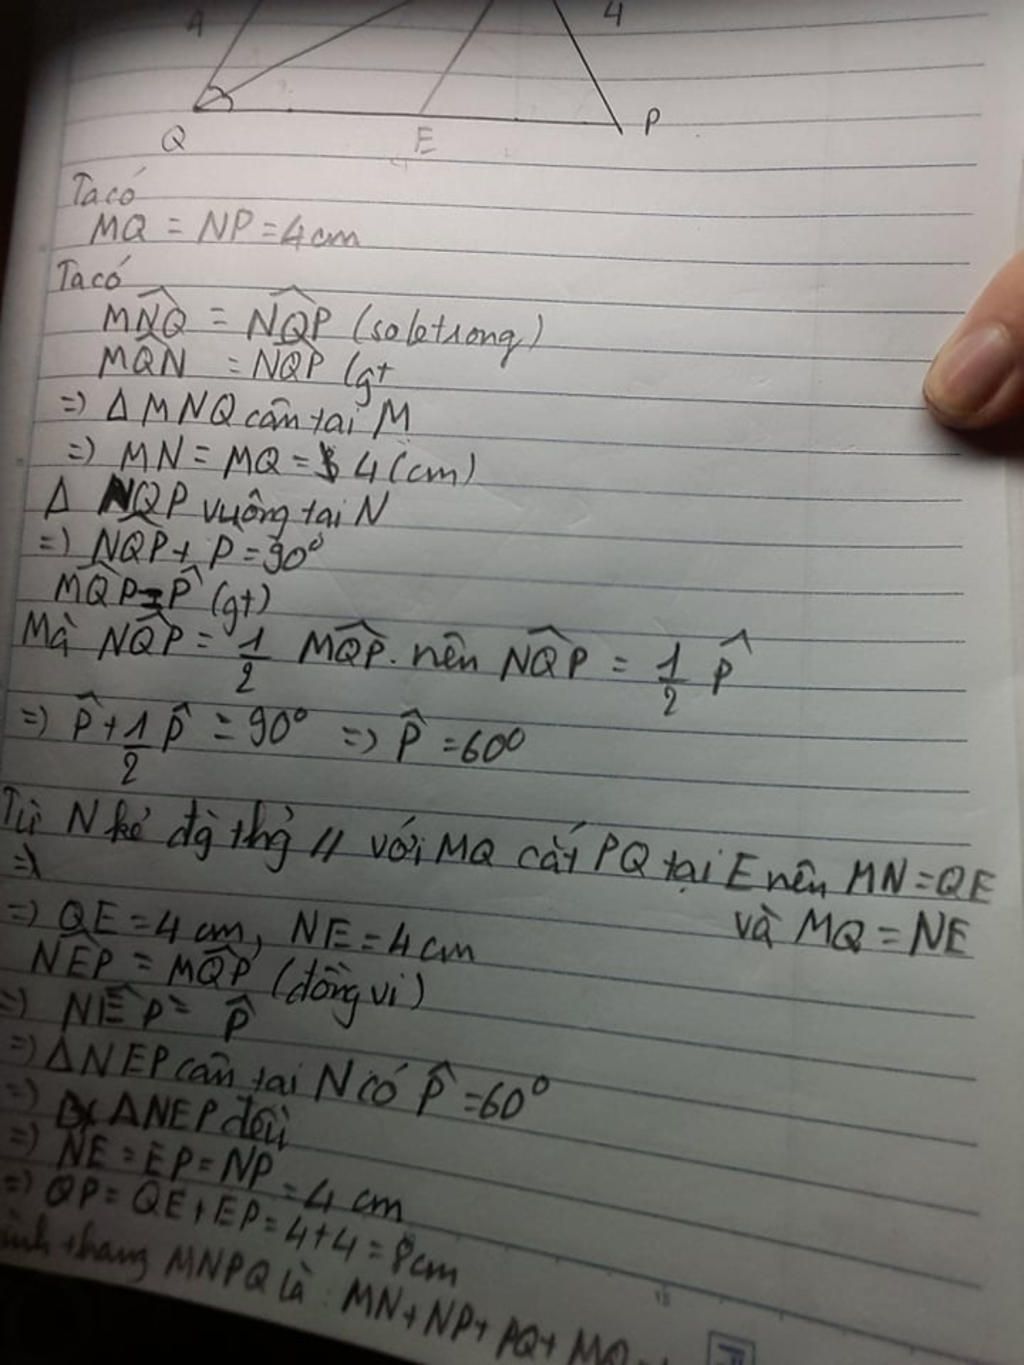 4 4
Q E P
Ta có
MQ = NP = 4 cm
Ta có
MN̂Q = NQ̂P (so le trong)
MQ̂N = NQ̂P (gt
=> Δ MNQ cân tại M
=> MN = MQ = 4 (cm)
Δ NQP vuông tại N
=> NQ̂P + P̂ = 90°
MQ̂P = P̂ (gt)
Mà NQ̂P = 1/2 MQ̂P. nên NQ̂P = 1/2 P̂
=> P̂ + 1/2 P̂ = 90° => P̂ = 60°
Từ N kẻ đg thg // với MQ cắt PQ tại E nên MN = QE
=> và MQ = NE
=> QE = 4 cm, NE = 4 cm
NÊP = MQ̂P (đồng vị)
=> NÊP = P̂
=> ΔNEP cân tại N có P̂ = 60°
=> ΔNEP đều
=> NE = EP = NP = 4 cm
=> QP = QE + EP = 4 + 4 = 8 cm
thang MNPQ là : MN + NP + PQ + MQ